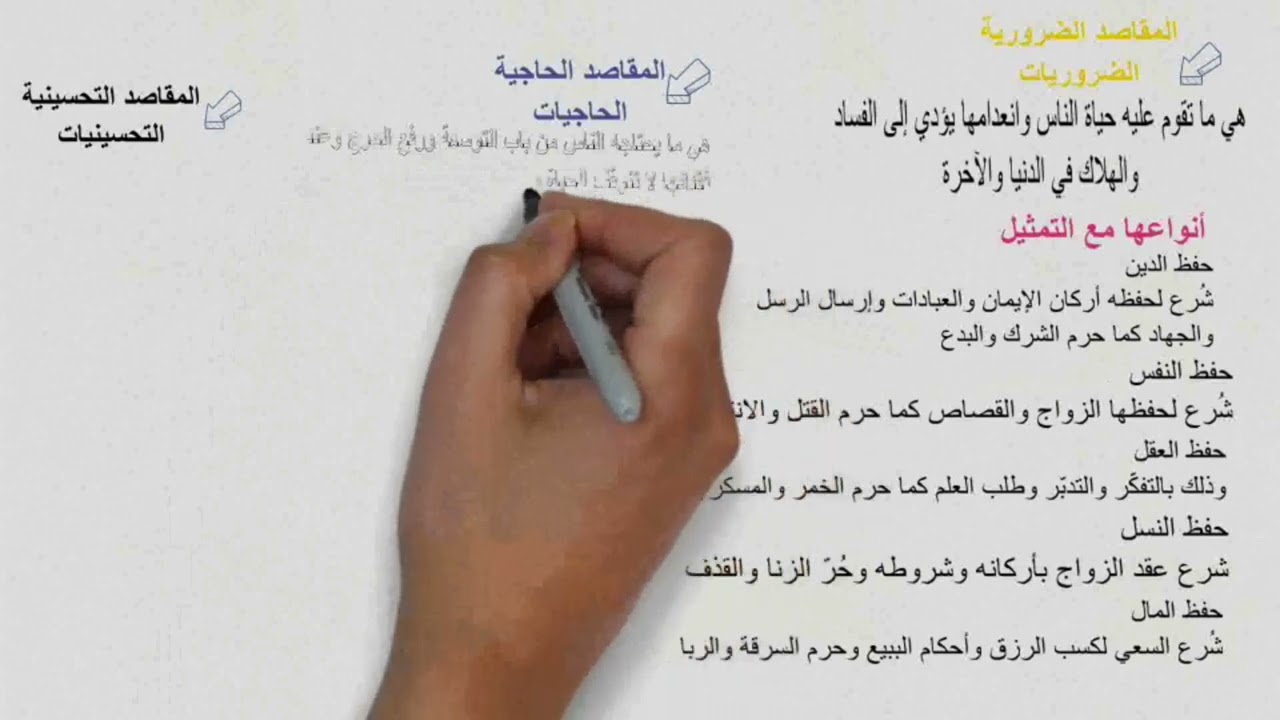 المقاصد الضرورية
الضروريات
هي ما تقوم عليه حياة الناس وانعدامها يؤدي إلى الفساد
والهلاك في الدنيا والآخرة
أنواعها مع التمثيل
حفظ الدين
شُرع لحفظه أركان الإيمان والعبادات وإرسال الرسل
والجهاد كما حرم الشرك والبدع
حفظ النفس
شُرع لحفظها الزواج والقصاص كما حرم القتل
حفظ العقل
وذلك بالتفكّر والتدبّر وطلب العلم كما حرم الخمر
حفظ النسل
شرع عقد الزواج بأركانه وشروطه وحُرّ الزنا والقذف
حفظ المال
شُرع السعي لكسب الرزق وأحكام الببيع وحرم السرقة والربا
المقاصد الحاجية
الحاجيات
هي ما يحتاجه الناس من باب التوسعة ورفع الحرج وعند
لا تتوقف الحياة
المقاصد التحسينية
التحسينيات